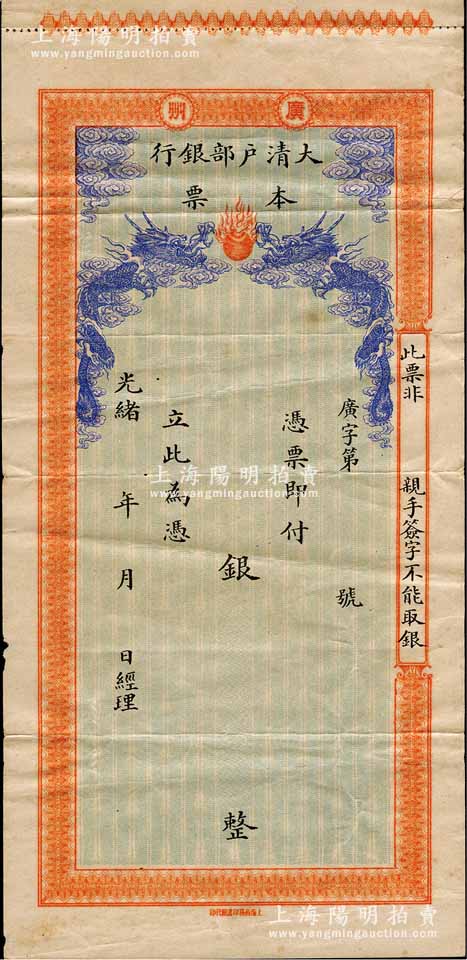 上海陽明拍賣
www.yangmingauction.com
廣州
大清戶部銀行
本票
此票非 親手簽字不能取銀
廣字第 號
憑票即付
銀 整
立此為憑
光緒 年 月 日經理
上海陽明拍賣
www.yangmingauction.com
上海陽明拍賣
www.yangmingauction.com